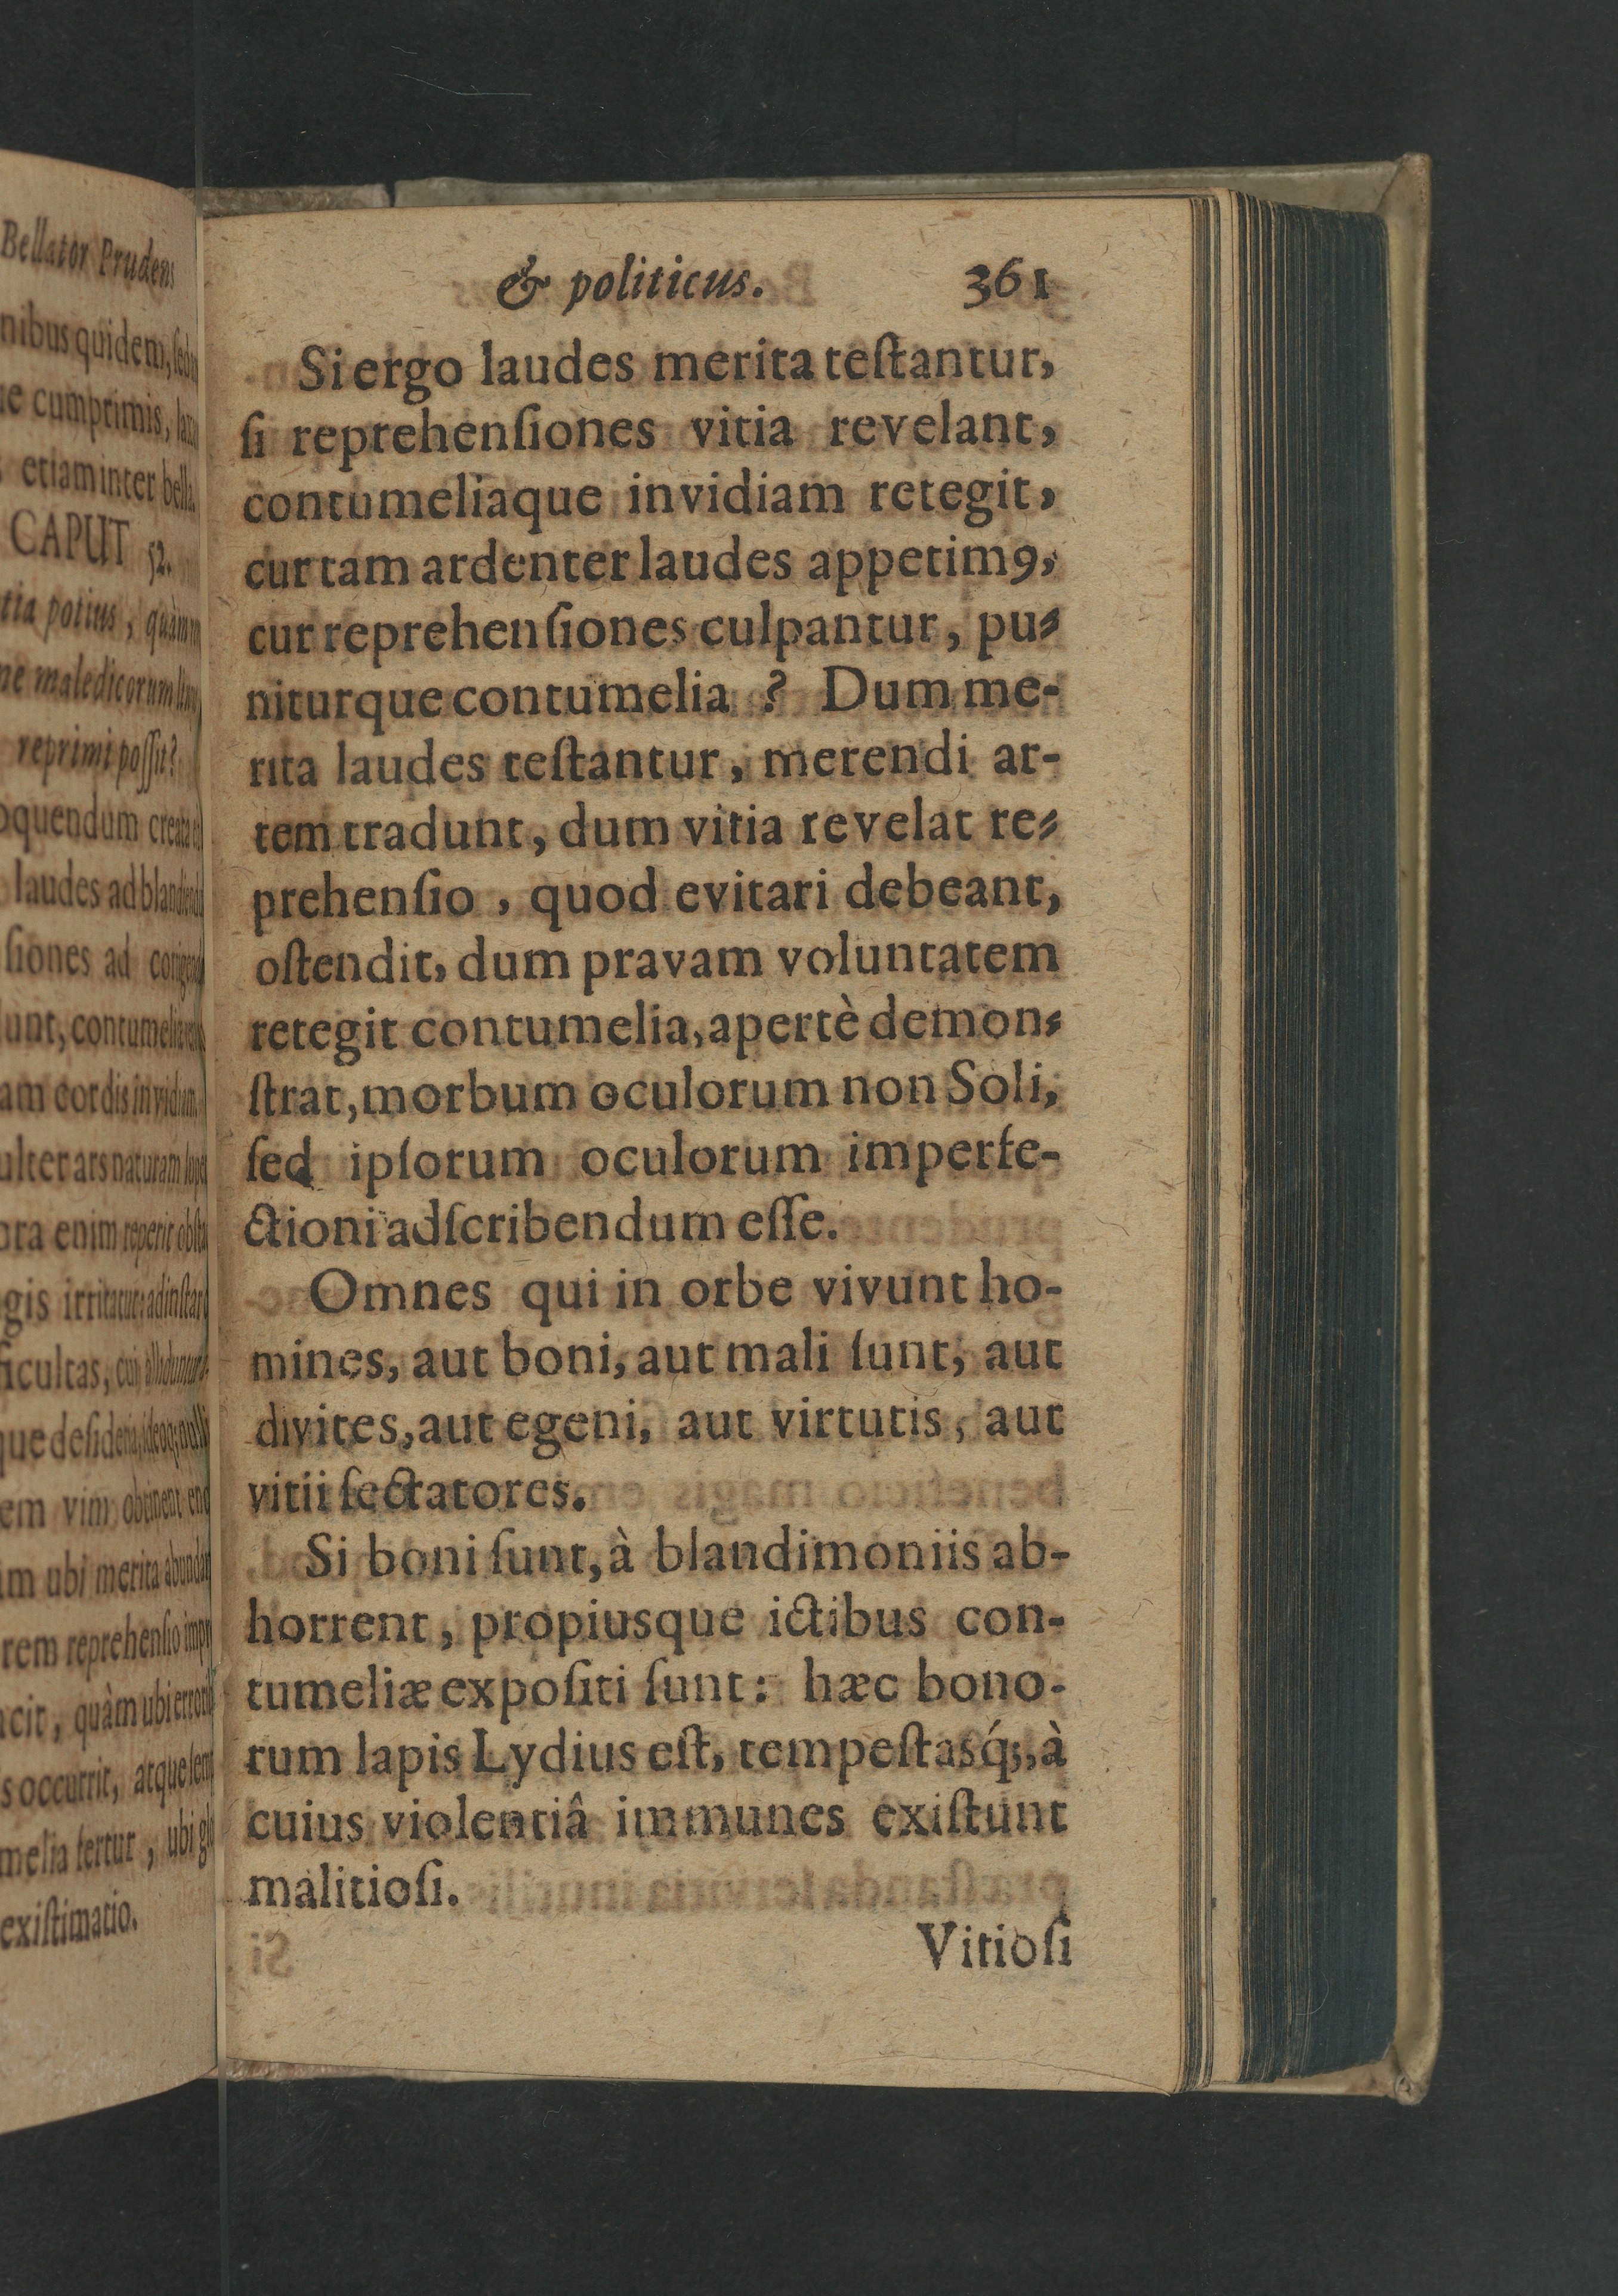 Bellator Prudens
nibus quidem, sed
cumprimis,
etiam inter bella.
CAPUT 52.
tia potius, quàm
ne maledicorum
reprimi poſſit?
oquendum creata
laudes ad
ſiones ad
unt,
am cordis
ulter ars naturam
ora enim reperit
gis irritatur:
ficultas, cui
que
em vim obtinent
m ubi merita
rem reprehenſio
cit, quàm ubi
s occurrit, atque
melia fertur, ubi
exiſtimatio.
& politicus. 361
Si ergo laudes merita teſtantur,
ſi reprehenſiones vitia revelant,
contumeliaque invidiam retegit,
cur tam ardenter laudes appetimꝰ,
cur reprehenſiones culpantur, pu-
niturque contumelia ? Dum me-
rita laudes teſtantur, merendi ar-
tem tradunt, dum vitia revelat re-
prehenſio, quod evitari debeant,
oſtendit, dum pravam voluntatem
retegit contumelia, apertè demon-
ſtrat, morbum oculorum non Soli,
ſed ipſorum oculorum imperfe-
ctioni adſcribendum eſſe.
Omnes qui in orbe vivunt ho-
mines, aut boni, aut mali ſunt, aut
divites, aut egeni, aut virtutis, aut
vitii ſectatores.
Si boni ſunt, à blandimoniis ab-
horrent, propiusque ictibus con-
tumeliæ expoſiti ſunt: hæc bono-
rum lapis Lydius eſt, tempeſtasq́;, à
cuius violentiâ immunes exiſtunt
malitioſi.
Vitioſi